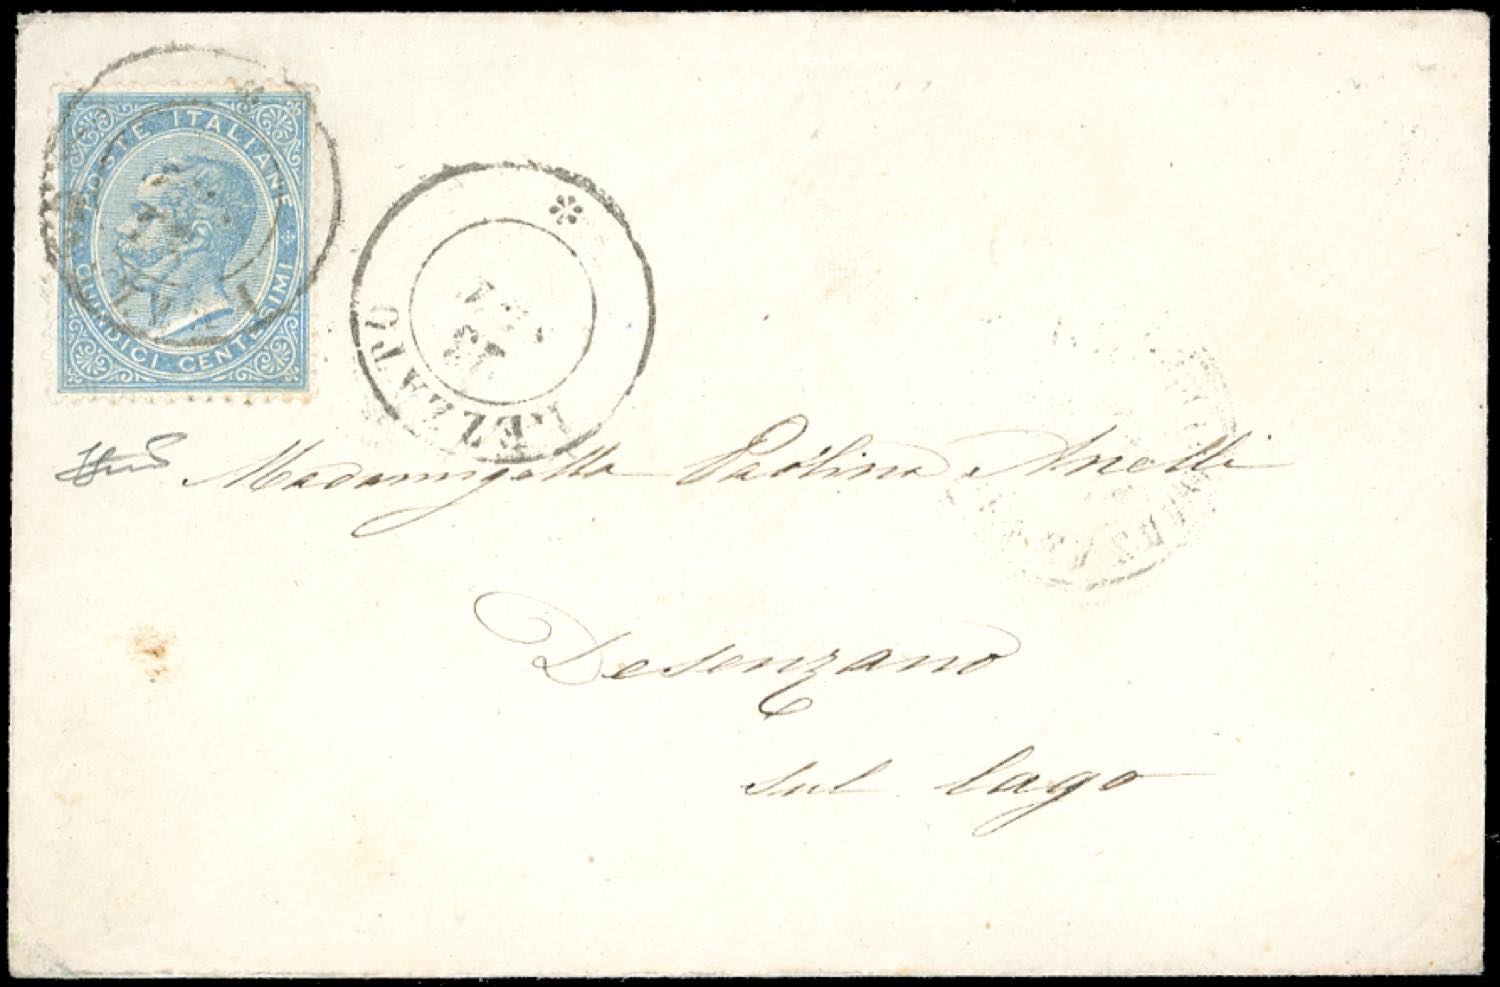 POSTE ITALIANE
QUINDICI CENTESIMI
REZZATO
Madamigella Paolina Anelli
Desenzano
sul lago